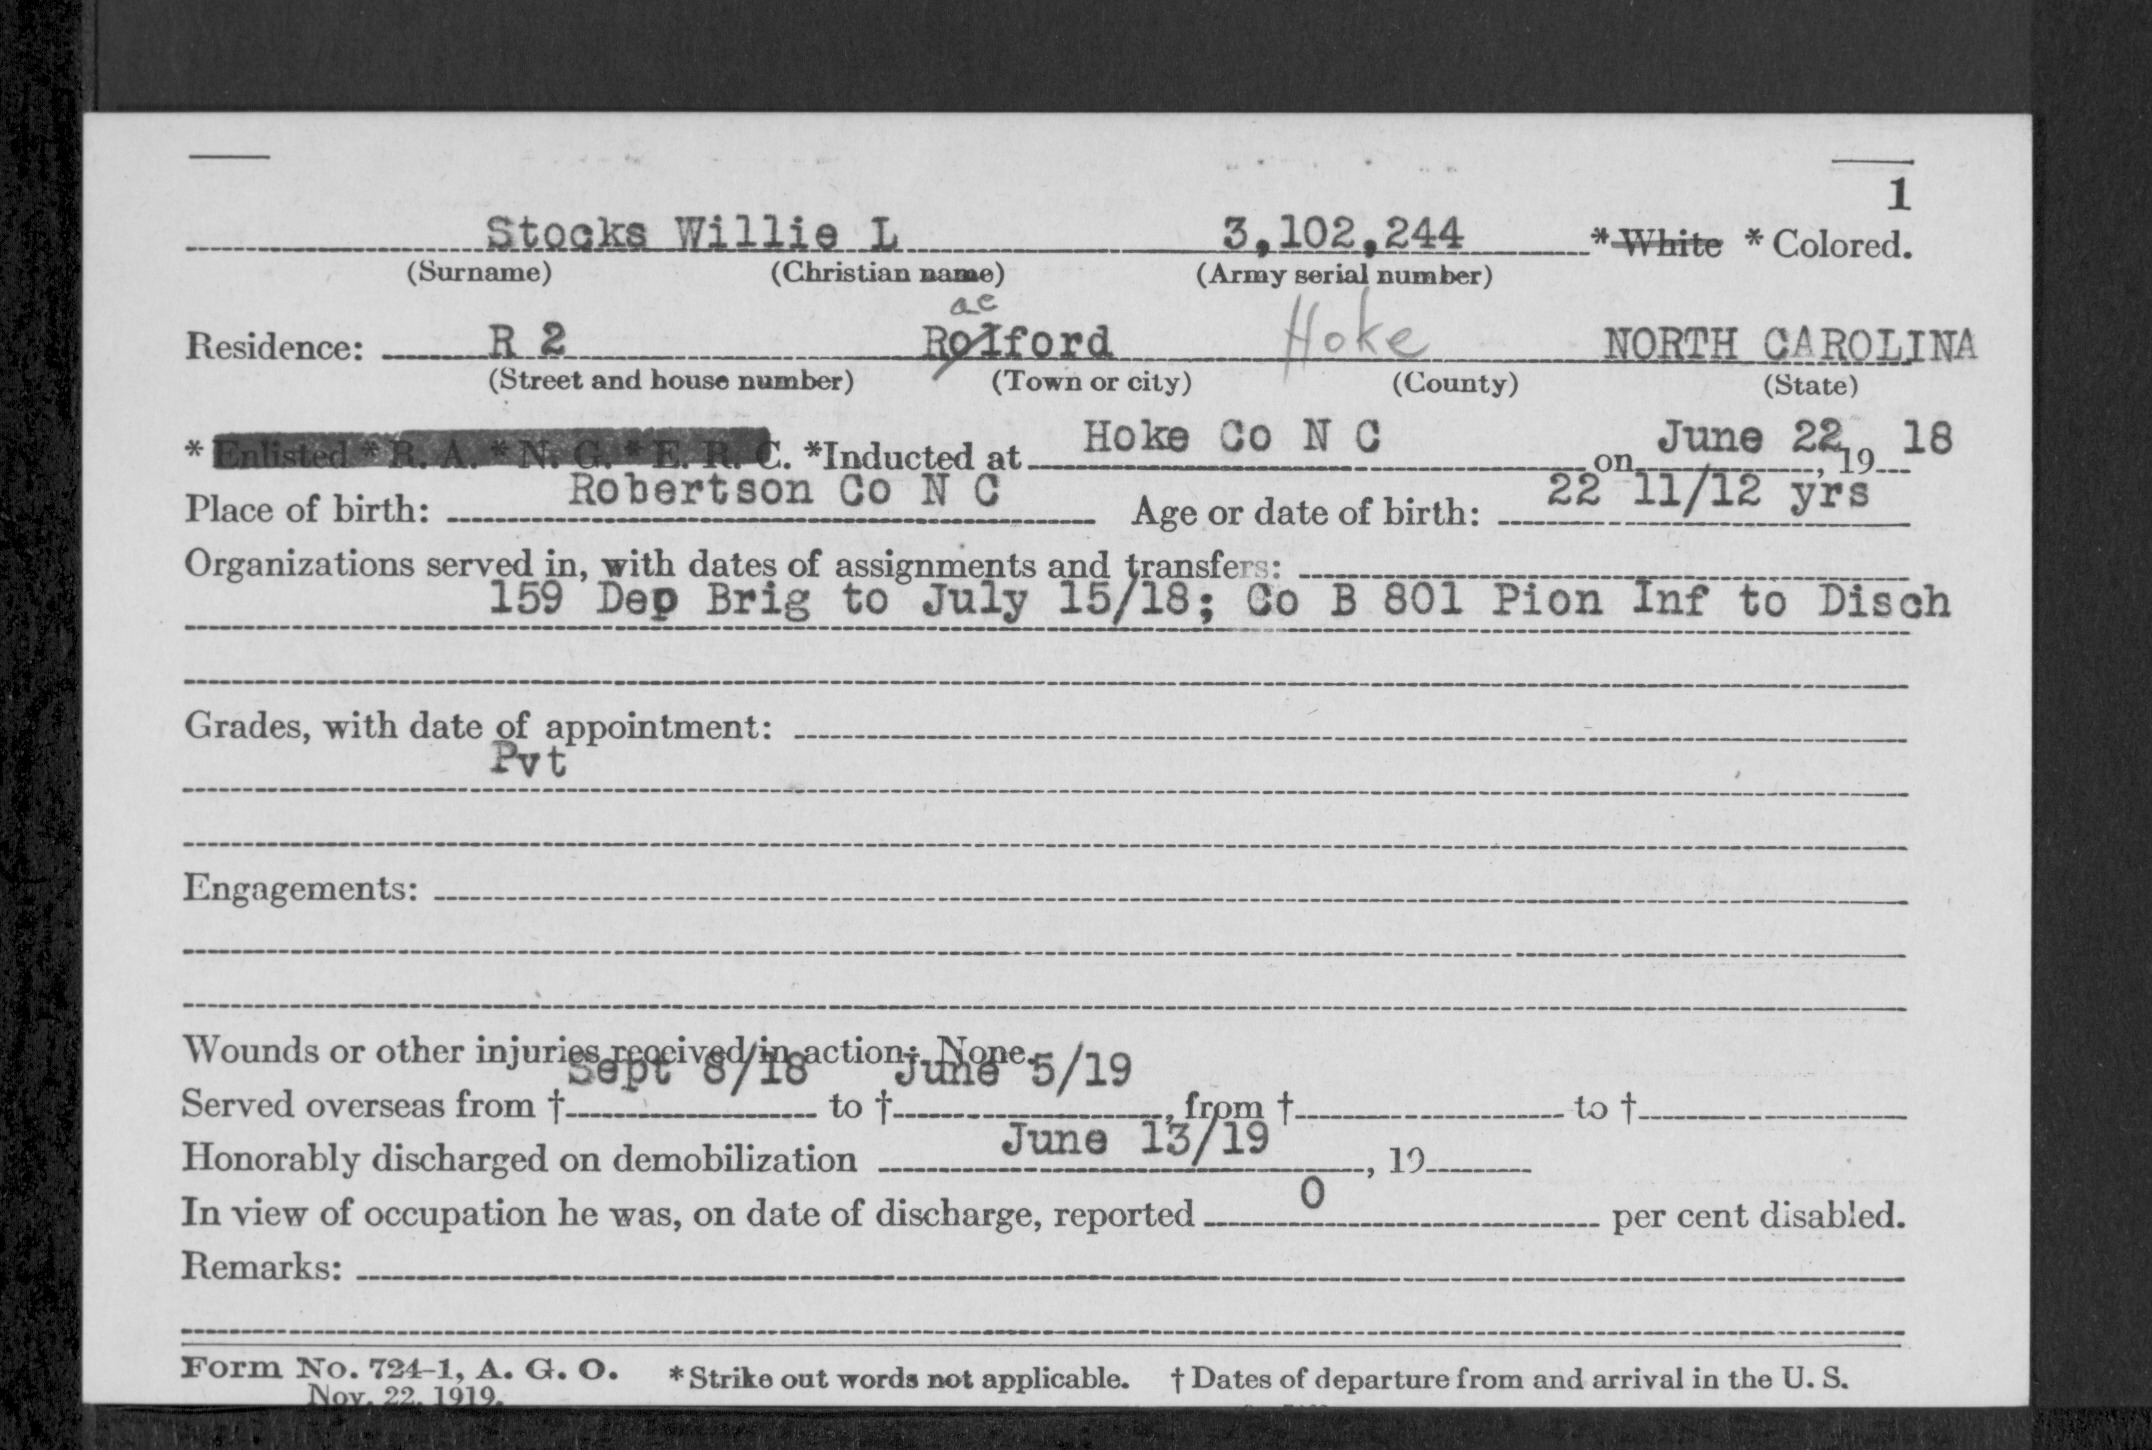 1
Stocks Willie L 3,102,244 * White * Colored.
(Surname) (Christian name) (Army serial number)
ae
Residence: R 2 Rolford Hoke NORTH CAROLINA
(Street and house number) (Town or city) (County) (State)
* Enlisted * R. A. * N. G. * E. R. C. *Inducted at Hoke Co N C on June 22, 19 18
Place of birth: Robertson Co N C Age or date of birth: 22 11/12 yrs
Organizations served in, with dates of assignments and transfers:
159 Dep Brig to July 15/18; Co B 801 Pion Inf to Disch
Grades, with date of appointment:
Pvt
Engagements:
Wounds or other injuries received in action: None.
Served overseas from † Sept 8/18 to † June 5/19, from † to †
Honorably discharged on demobilization June 13/19, 19
In view of occupation he was, on date of discharge, reported 0 per cent disabled.
Remarks:
Form No. 724-1, A. G. O. * Strike out words not applicable. † Dates of departure from and arrival in the U. S.
Nov. 22, 1919.